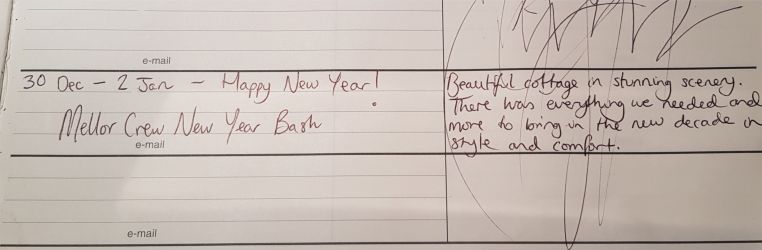 e-mail
30 Dec – 2 Jan – Happy New Year!
Mellor Crew New Year Bash
e-mail
Beautiful cottage in stunning scenery.
There was everything we needed and
more to bring in the new decade in
style and comfort.
e-mail